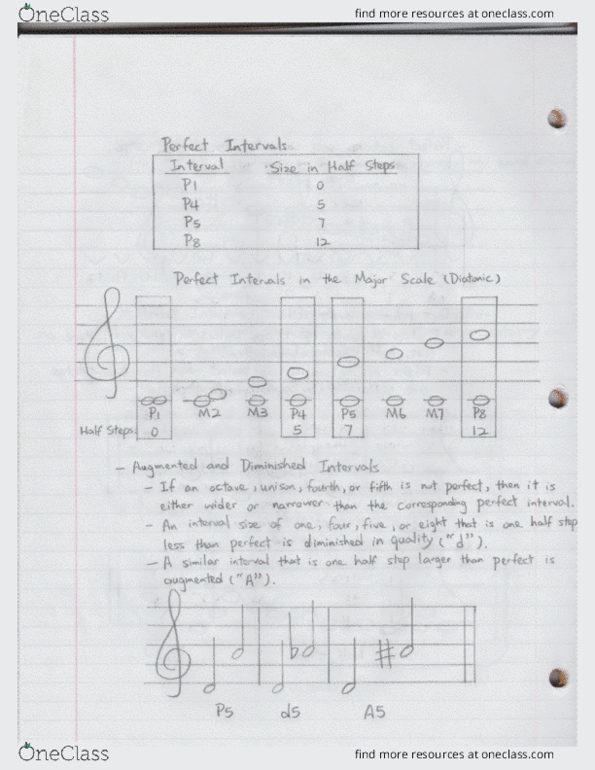 OneClass find more resources at oneclass.com
Perfect Intervals
Interval Size in Half Steps
P1 0
P4 5
P5 7
P8 12
Perfect Intervals in the Major Scale (Diatonic)
P1 M2 M3 P4 P5 M6 M7 P8
Half Steps: 0 5 7 12
- Augmented and Diminished Intervals
- If an octave, unison, fourth, or fifth is not perfect, then it is
either wider or narrower than the corresponding perfect interval.
- An interval size of one, four, five, or eight that is one half step
less than perfect is diminished in quality ("d").
- A similar interval that is one half step larger than perfect is
augmented ("A").
P5 d5 A5
OneClass find more resources at oneclass.com